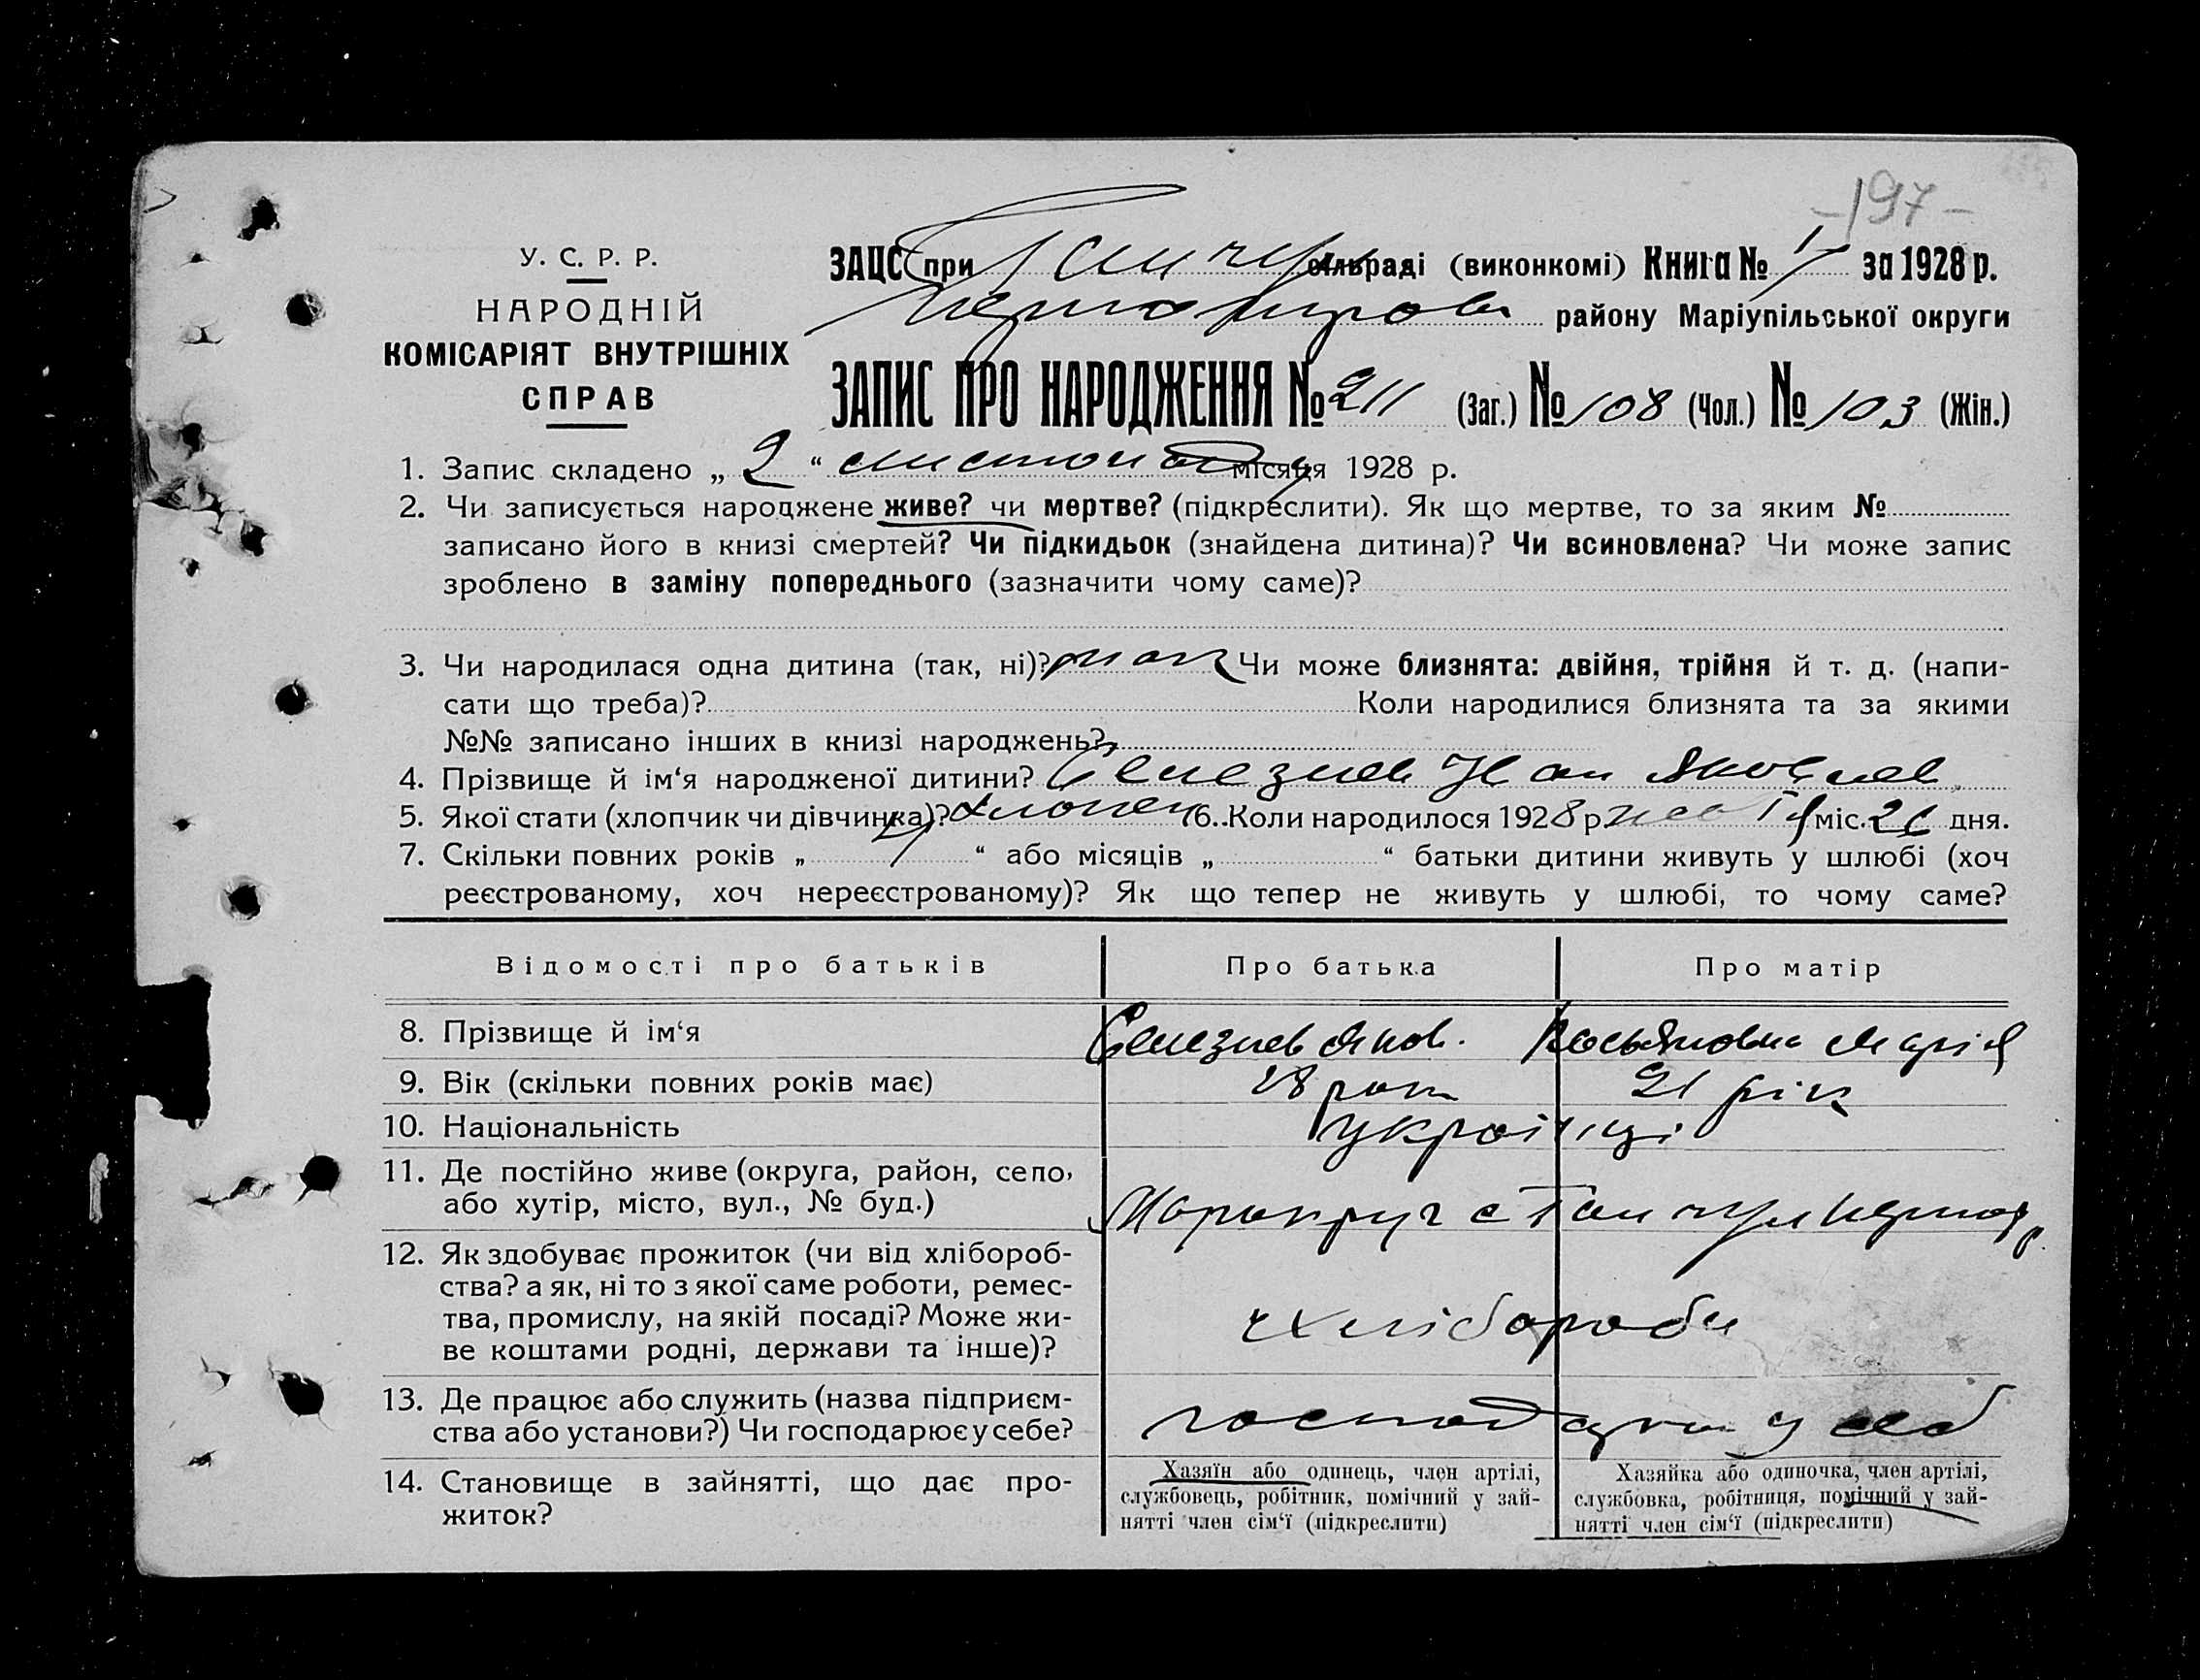 -197-
У. С. Р. Р.
НАРОДНІЙ
КОМІСАРІЯТ ВНУТРІШНІХ
СПРАВ
ЗАЦС при сільраді (виконкомі) Книга № за 1928 р.
району Маріупільської округи
ЗАПИС ПРО НАРОДЖЕННЯ № 211 (Заг.) № 108 (Чол.) № 103 (Жін.)
1. Запис складено „ 2 “ листопаду місяця 1928 р.
2. Чи записується народжене живе? чи мертве? (підкреслити). Як що мертве, то за яким №
записано його в книзі смертей? Чи підкидьок (знайдена дитина)? Чи всиновлена? Чи може запис
зроблено в заміну попереднього (зазначити чому саме)?
3. Чи народилася одна дитина (так, ні)? так Чи може близнята: двійня, трійня й т. д. (напи-
сати що треба)? Коли народилися близнята та за якими
№№ записано інших в книзі народжень?
4. Прізвище й ім‘я народженої дитини? Селезнев
5. Якої стати (хлопчик чи дівчинка)? хлопец 6. Коли народилося 1928 р. міс. 26 дня.
7. Скільки повних років „ “ або місяців „ “ батьки дитини живуть у шлюбі (хоч
реєстрованому, хоч нереєстрованому)? Як що тепер не живуть у шлюбі, то чому саме?
Відомості про батьків Про батька Про матір
8. Прізвище й ім‘я Селезнев Яков. Марія
9. Вік (скільки повних років має) 28 рок 21 рік
10. Національність українці
11. Де постійно живе (округа, район, село,
або хутір, місто, вул., № буд.)
12. Як здобуває прожиток (чи від хлібороб-
ства? а як, ні то з якої саме роботи, ремес-
тва, промислу, на якій посаді? Може жи-
ве коштами родні, держави та інше)? хлібороби
13. Де працює або служить (назва підприєм-
ства або установи?) Чи господарює у себе? у себ
14. Становище в зайнятті, що дає про-
житок?
Хазяїн або одинець, член артілі,
службовець, робітник, помічний у зай-
нятті член сім‘ї (підкреслити)
Хазяйка або одиночка, член артілі,
службовка, робітниця, помічний у зай-
нятті член сім‘ї (підкреслити)